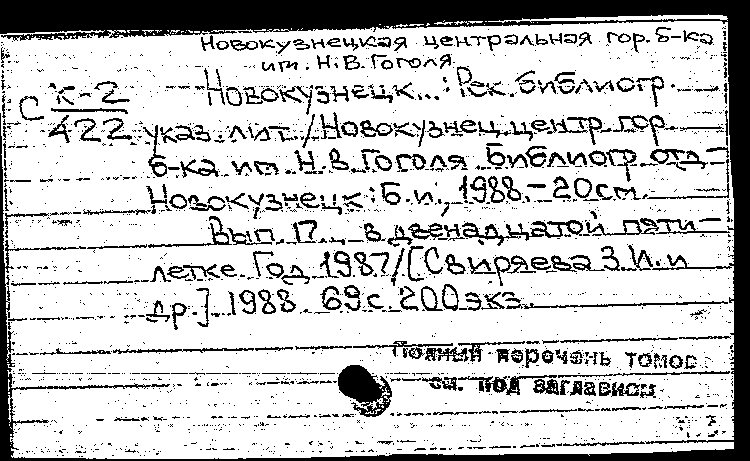 Новокузнецкая центральная гор. б-ка
им. Н.В. Гоголя
С К-2
422
Новокузнецк...: Рек. библиогр.
указ. лит. / Новокузнец. центр. гор.
б-ка им. Н.В. Гоголя. Библиогр. отд. -
Новокузнецк: Б.и., 1988. - 20 см.
Вып. 17... в двенадцатой пяти-
летке. Год 1987 / [Свиряева З.И. и
др.]. 1988. 69 с. 200 экз.
Полный перечень томов
см. под заглавием